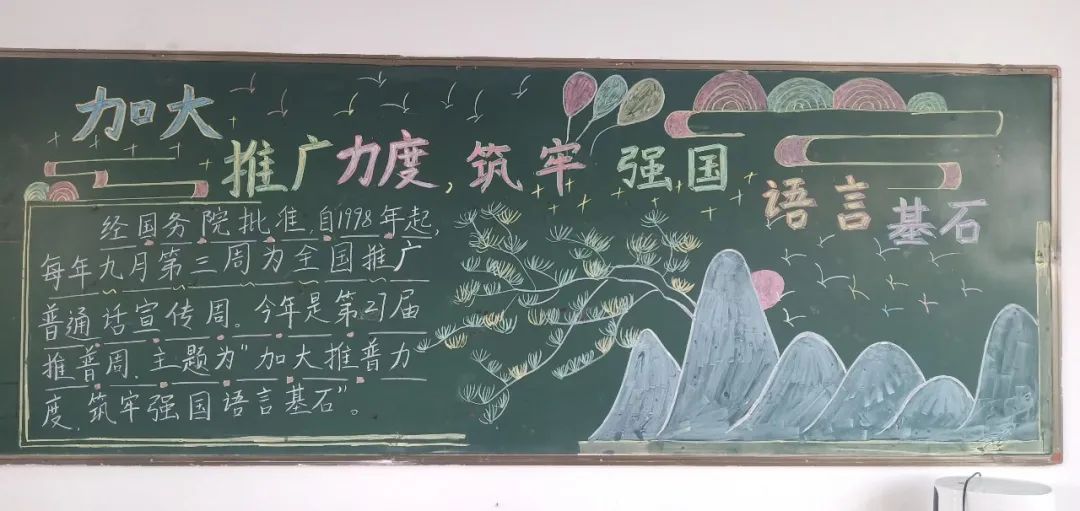 加大
推广力度,筑牢 强国
语言
基石
经国务院批准,自1998年起,
每年九月第三周为全国推广
普通话宣传周。今年是第27届
推普周,主题为"加大推普力
度,筑牢强国语言基石"。